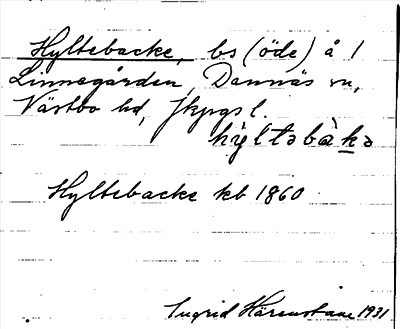 Hyltebacke, bs (öde) å 1
Linnegården, Dannäs sn,
Västbo hd, Jkpgs l.
hỳltəbàkə
Hyltebacke kb 1860
Ingrid Härenstam 1931